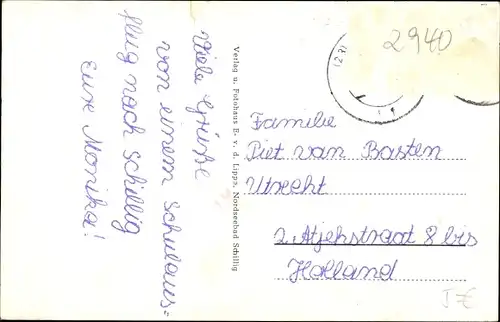 Viele Grüße
von einem Schulaus=
flug nach Schillig
Eure Monika!
Verlag u. Fotohaus E. v. d. Lippe, Nordseebad Schillig
2940
Familie
Piet van Basten
Utrecht
2. Atjehstraat 8 bis
Holland